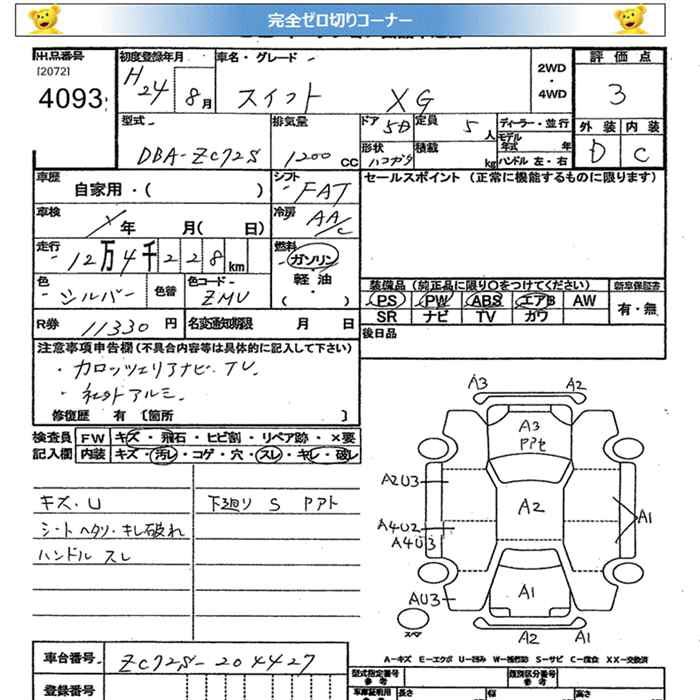 完全ゼロ切りコーナー
出品番号 初度登録年月 車名・グレード 評価点
[2072] 4093 H24 8月 スイフト XG 2WD・4WD 3
型式 排気量 ドア 5D 定員 5人 ディーラー・並行 外装 内装
DBA-ZC72S 1200cc 形状 ハコガタ 積載 kg モデル年式 年 ハンドル 左・右 D C
車歴 自家用・( ) シフト FAT セールスポイント (正常に機能するものに限ります)
車検 年 月( 日) 冷房 AA/C
走行 12万4千228km 燃料 ガソリン・軽油・( )
色 シルバー 色替 色コード ZMU 装備品 (純正品に限り○をつけてください) 新車保証書
PS PW ABS エアB AW 有・無
R券 11330円 名変通知期限 月 日 SR ナビ TV カワ
注意事項申告欄 (不具合内容等は具体的に記入して下さい) 後日品
・カロッツェリアナビ・TV.
・社外アルミ.
修復歴 有 〔箇所 〕
検査員 FW キズ・飛石・ヒビ割・リペア跡・×要
記入欄 内装 キズ・汚レ・コゲ・穴・スレ・キレ・破レ
キズ・U 下廻り S Pアト
シートヘタリ・キレ破れ
ハンドル スレ
A3 A2
A3
PPセ
A2U3 A2 A1
A4U2
A4U3
AU3 A1
スペア A2 A1
A-キズ E-エクボ U-凹み W-補修跡 S-サビ C-腐食 XX-交換済
車台番号 ZC72S-204427 型式指定番号 参考 類別区分番号 参考
登録番号 車庫証明用 長さ 幅 高さ